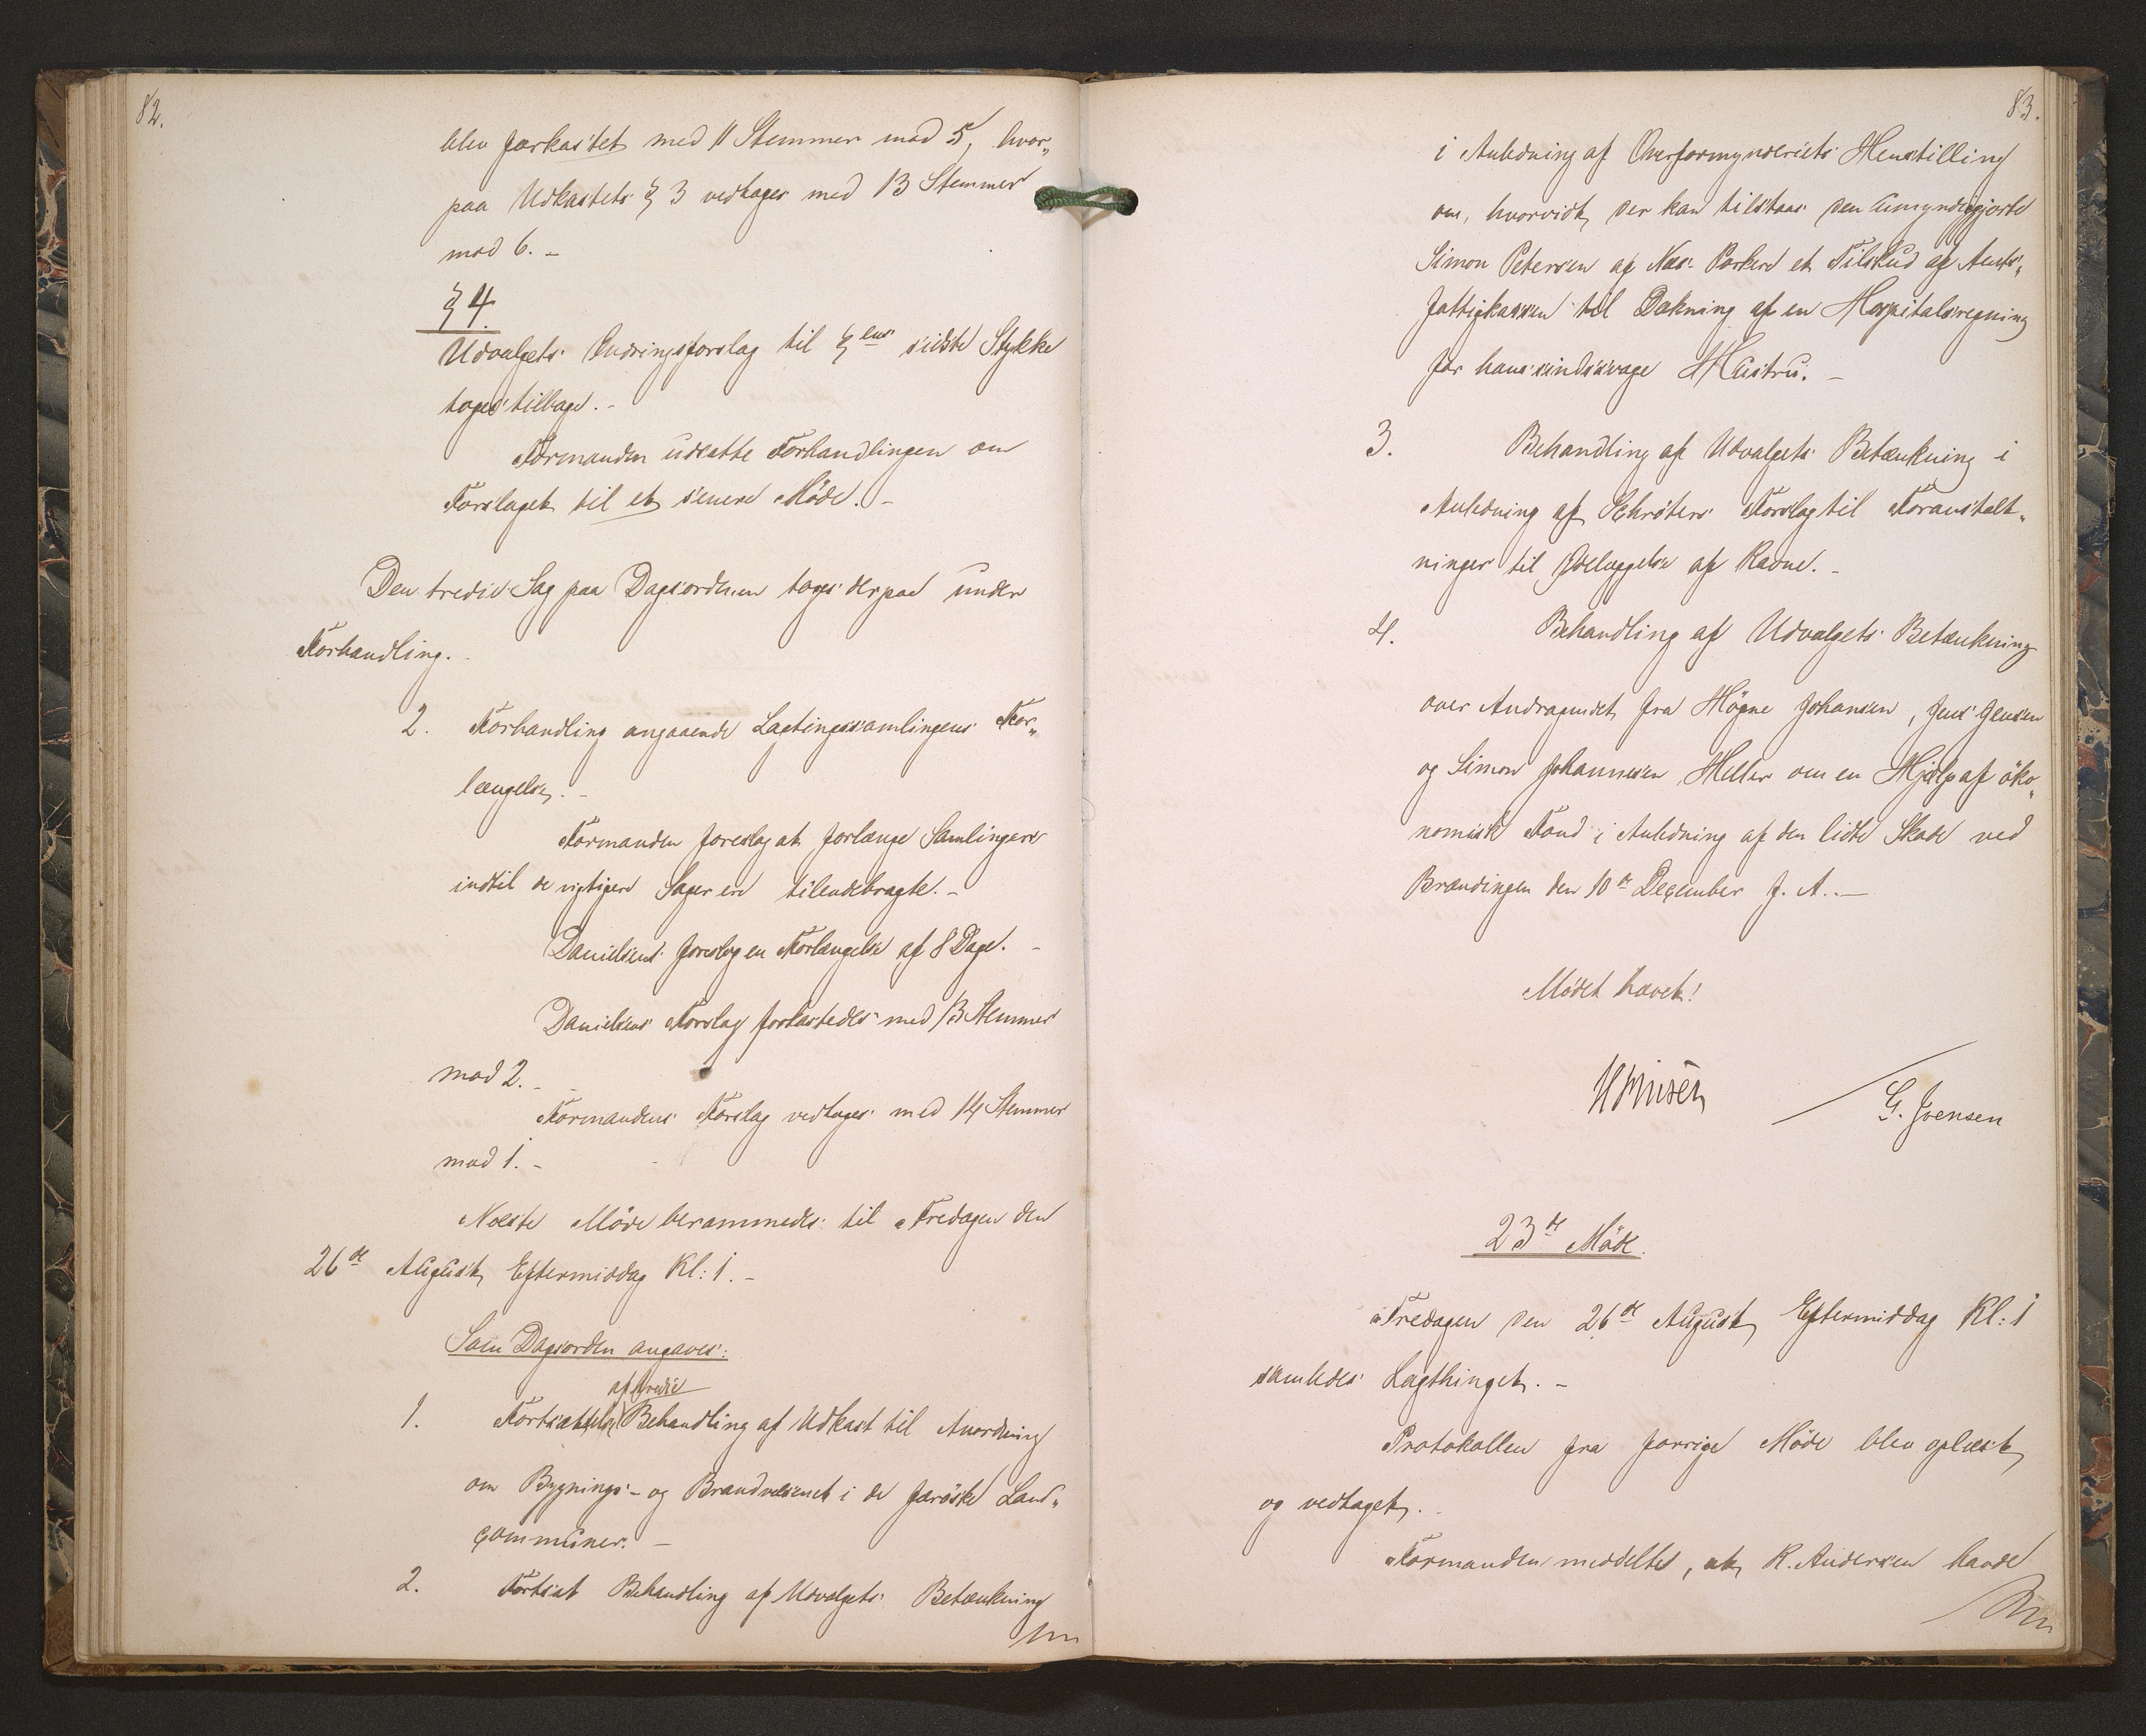 82.
blev forkastet med 11 Stemmer mod 5, hvor„
paa Udkastets § 3 vedtoges med 13 Stemmer
mod 6. –
§ 4.
Udvalgets Ændringsforslag til §ens sidste Stykke
toges tilbage. –
Formanden udsatte Forhandlingen om
Forslaget til et senere Möde. –
Den tredie Sag paa Dagsordenen toges derpaa under
Forhandling.
2. Forhandling angaaende Lagtingssamlingens For„
længelse. –
Formanden foreslog at forlænge Samlingen
indtil de vigtigere Sager ere tilendebragte. –
Danielsen foreslog en Forlængelse af 8 Dage. –
Danielsens Forslag forkastedes med 13 Stemmer
mod 2. –
Formandens Forslag vedtoges med 14 Stemmer
mod 1. –
Næste Möde berammedes til Fredagen den
26de August Eftermiddag Kl: 1. –
Som Dagsorden angaves:
af tredie
1. Fortsættelse Behandling af Udkast til Anordning
om Bygnings- og Brandvæsenet i de færöske Land„
communer. –
2. Fortsat Behandling af Udvalgets Betænkning
83.
i Anledning af Overformynderiets Henstilling
om, hvorvidt der kan tilstaas den umyndiggjorte
Simon Petersen af Næs Porkere et Tilskud af Amts„
fattigkassen til Dækning af en Hospitalsregning
for hans sindssvage Hustru. –
3. Behandling af Udvalgets Betænkning i
Anledning af Schröters Forslag til Foranstalt„
ninger til Ødelæggelse af Ravne. –
4. Behandling af Udvalgets Betænkning
over Andragendet fra Högne Johansen, Jens Jensen
og Simon Johannesen Heller om en Hjælp af öko„
nomisk Fond i Anledning af den lidte Skade ved
Brændingen den 10de December f. A. –
Mödet hævet!
G. Joensen
23de Möde.
Fredagen den 26de August Eftermiddag Kl: 1
samledes Lagthinget. –
Protokollen fra forrige Möde blev oplæst
og vedtaget.
Formanden meddelte, at K. Andersen havde